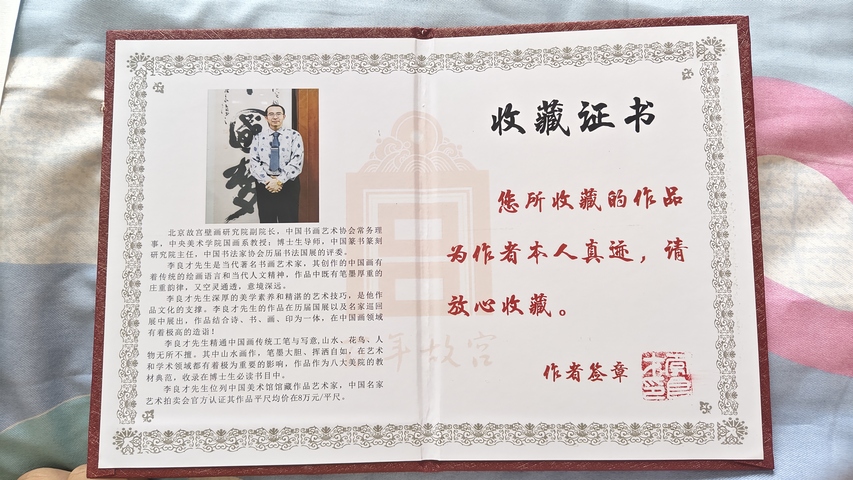 北京故宫壁画研究院副院长，中国书画艺术协会常务理
事，中央美术学院国画系教授；博士生导师，中国篆书篆刻
研究院主任，中国书法家协会历届书法国展的评委。
李良才先生是当代著名书画艺术家，其创作的中国画有
着传统的绘画语言和当代人文精神，作品中既有笔墨厚重的
庄重韵律，又空灵通透，意境深远。
李良才先生深厚的美学素养和精湛的艺术技巧，是他作
品文化的支撑。李良才先生的作品在历届国展以及名家巡回
展中展出，作品结合诗、书、画、印为一体，在中国画领域
有着极高的造诣！
李良才先生精通中国画传统工笔与写意,山水、花鸟、人
物无所不擅。其中山水画作，笔墨大胆、挥洒自如，在艺术
和学术领域都有着极为重要的影响，作品作为八大美院的教
材典范，收录在博士生必读书目中。
李良才先生位列中国美术馆馆藏作品艺术家，中国名家
艺术拍卖会官方认证其作品平尺均价在8万元/平尺。
年故宫
收藏证书
您所收藏的作品
为作者本人真迹，请
放心收藏。
作者签章